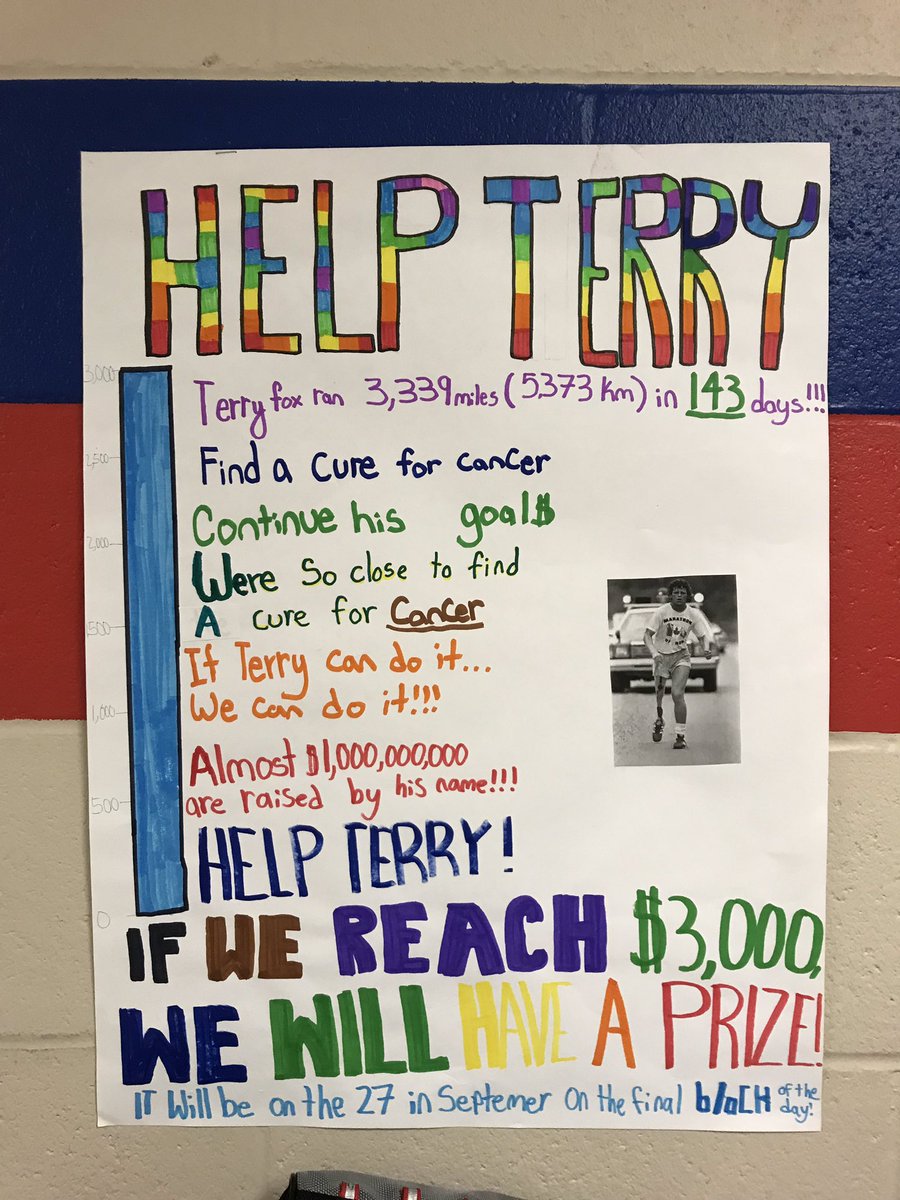 HELP TERRY
3,000
Terry fox ran 3,339 miles (5373 km) in 143 days!!!
2,500
Find a cure for cancer
Continue his goal$
2,000
Were So close to find
A cure for Cancer
1,500
If Terry can do it...
We can do it!!!
1,000
Almost $1,000,000,000
are raised by his name!!!
500
HELP TERRY!
0
IF WE REACH $3,000,
WE WILL HAVE A PRIZE!
IT Will be on the 27 in Septemer On the final bloCK of the day!
MARATHON